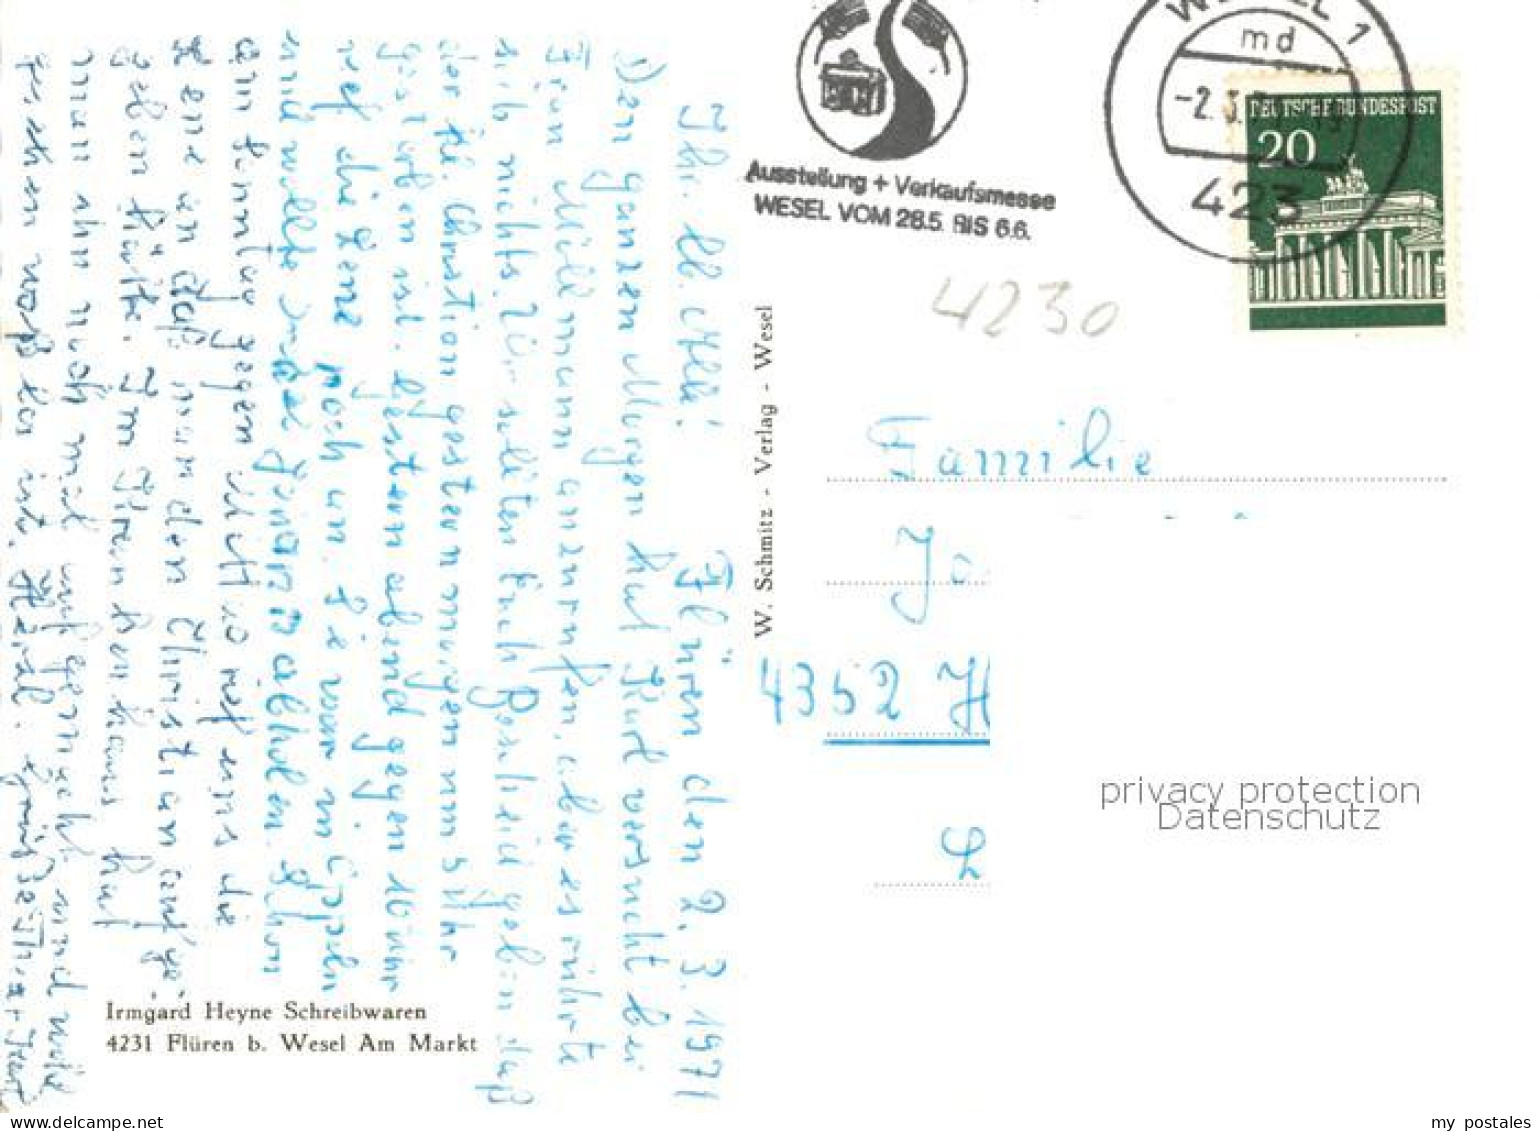 Ihr lb. Alle! Flüren den 2. 3. 1971
Den ganzen Morgen hat Kurt versucht bei
Frau Möllmann anzurufen, aber es rührte
sich nichts. Wir sollten Euch Bescheid geben daß
der kl. Christian gestern morgen um 5 Uhr
gestorben ist. Gestern abend gegen 10 Uhr
rief die Lene noch an. Sie war in
und wollte abholen. Schon
am Sonntag gegen so rief uns die
Lene an daß man den Christian aufge-
geben hätte. Im Krankenhaus hat
man ihn noch mal und will
sehen was los ist.
Irmgard Heyne Schreibwaren
4231 Flüren b. Wesel Am Markt
W. Schmitz - Verlag - Wesel
Ausstellung + Verkaufsmesse
WESEL VOM 28.5. BIS 6.6.
WESEL 1
md
-2.3.
423
DEUTSCHE BUNDESPOST
20
4230
Familie
4352 H
privacy protection
Datenschutz
www.delcampe.net
my_postales